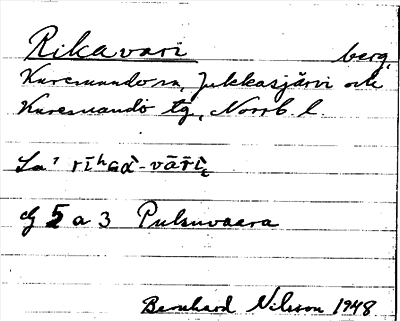 Rikavari berg,
Karesuando sn, Jukkasjärvi och
Karesuando tg, Norrb. l.
La¹
cf 5 a 3 Pulsuvaara
Bernhard Nilsson 1948